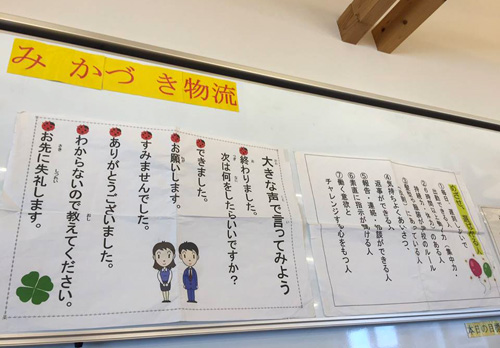 みかづき物流
大きな声で言ってみよう
終わりました。
次は何をしたらいいですか？
できました。
お願いします。
すみませんでした。
ありがとうございました。
わからないので教えてください。
お先に失礼します。
④気持ちよくあいさつ、
返事ができる人
⑤報告・連絡・相談ができる人
⑥素直に指示が聞ける人
⑦働く意欲と
チャレンジする心をもつ人
本日の目標